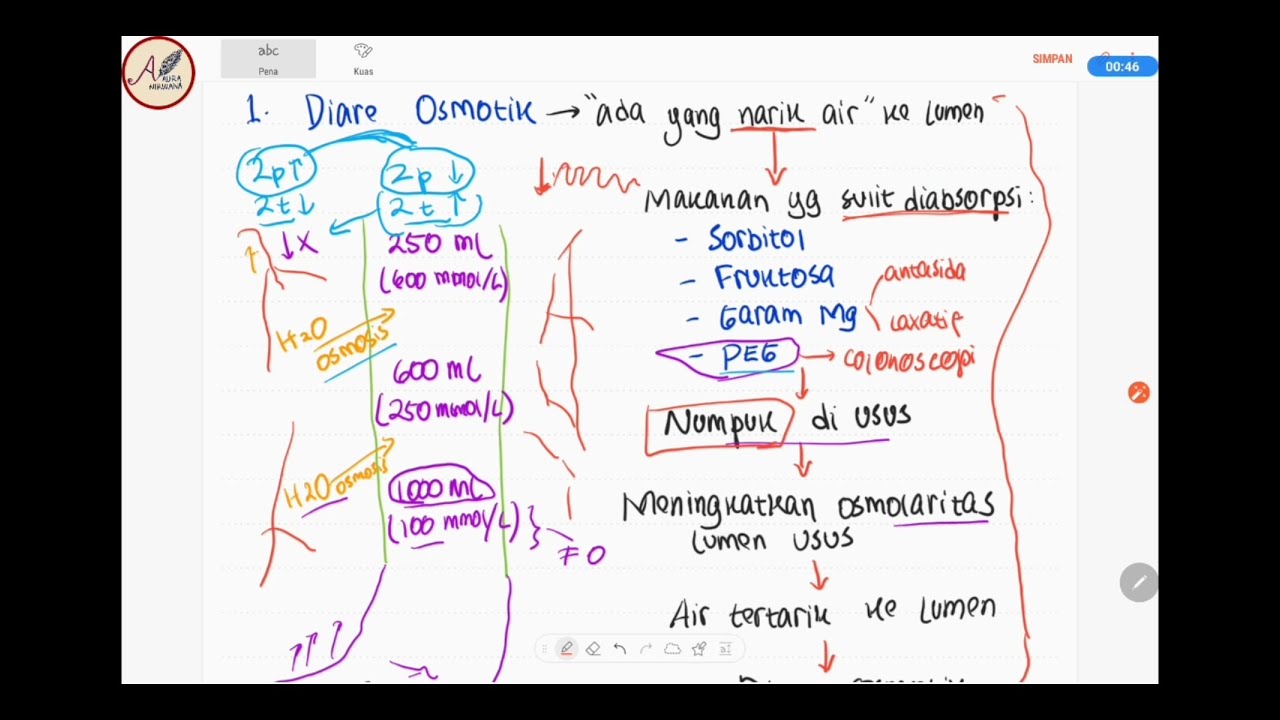 abc
Pena
Kuas
SIMPAN
00:46
AURA
NIRWANA
1. Diare Osmotik → "ada yang narik air" ke lumen
2p↑
2t↓
↓X
2p↓
2t↑
250 mL
(600 mmol/L)
H2O
osmosis
600 mL
(250 mmol/L)
H2O osmosis
1000 mL
(100 mmol/L)
≠0
↑↑↑
Makanan yg sulit diabsorpsi:
- Sorbitol
- Fruktosa
- Garam Mg
antasida
laxatif
- PEG → colonoscopi
Numpuk di usus
Meningkatkan osmolaritas
lumen usus
Air tertarik ke lumen